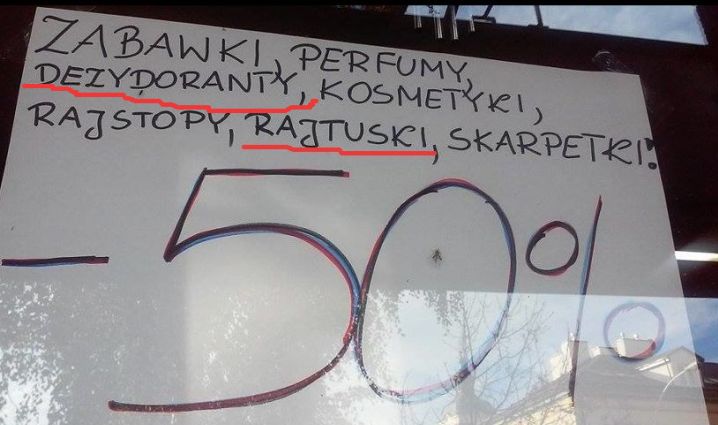 ZABAWKI, PERFUMY,
DEZYDORANTY, KOSMETYKI,
RAJSTOPY, RAJTUSKI, SKARPETKI!
-50%